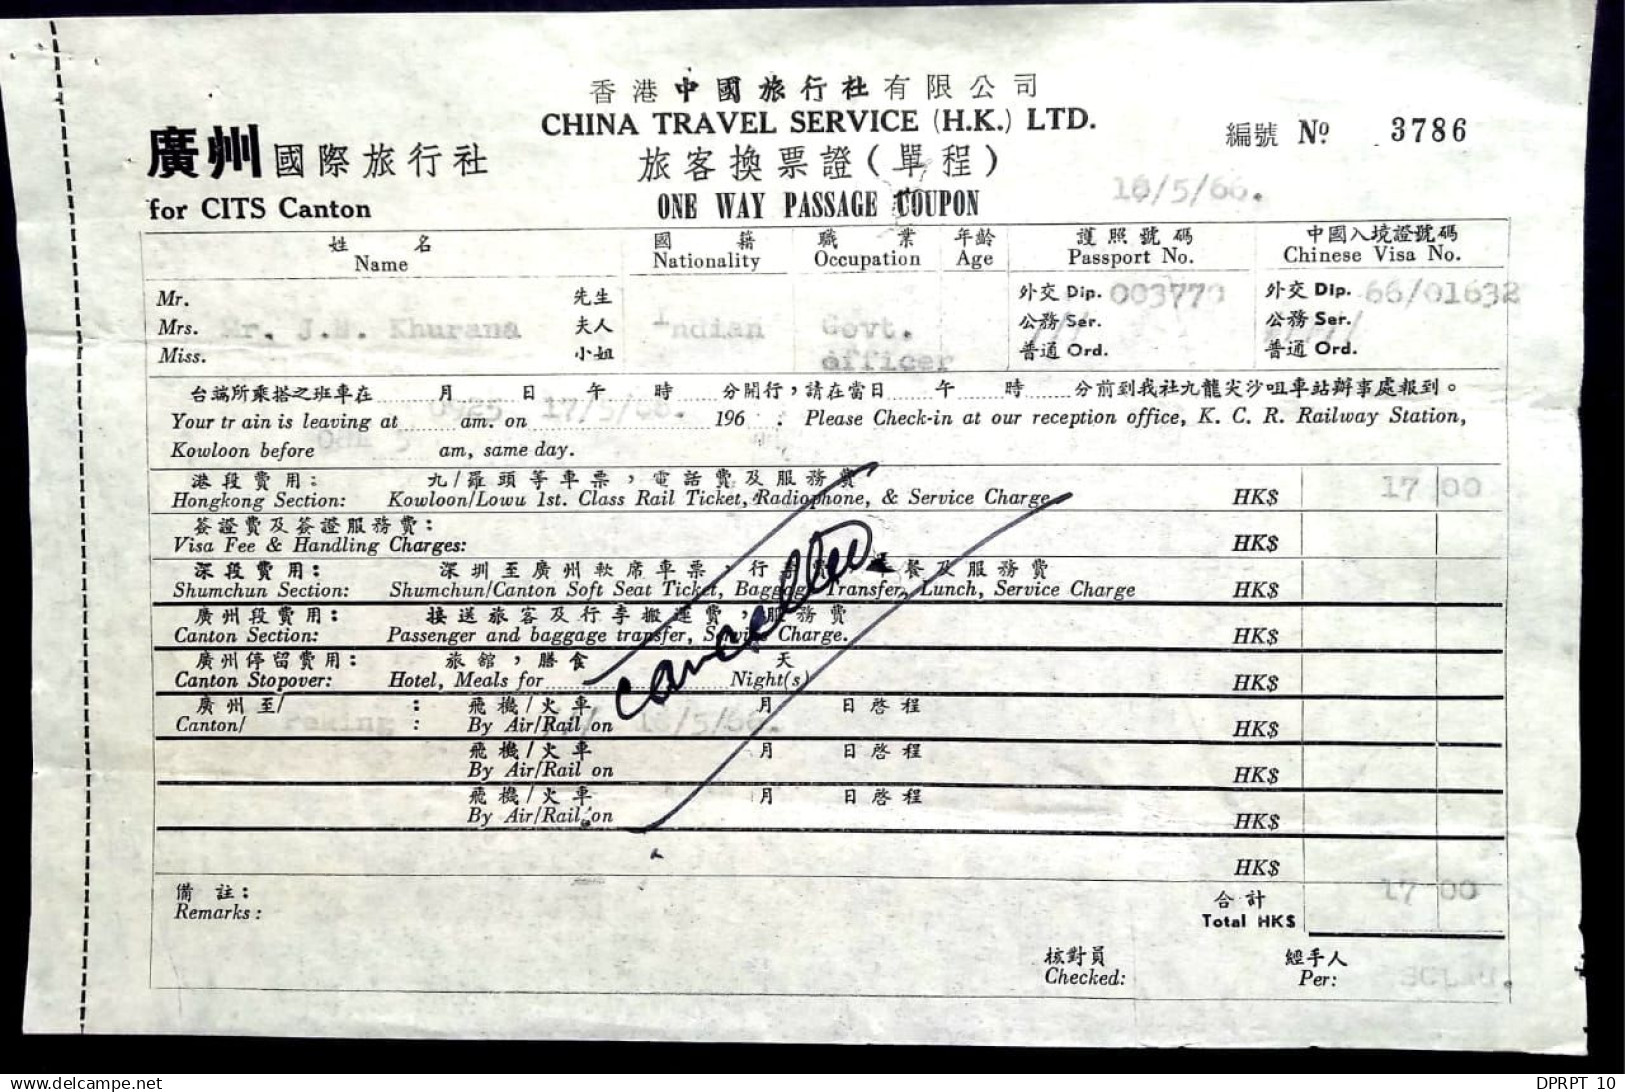 香港中國旅行社有限公司
CHINA TRAVEL SERVICE (H.K.) LTD.
廣州國際旅行社
旅客換票證(單程)
編號 Nº 3786
for CITS Canton
ONE WAY PASSAGE COUPON
10/5/66.
姓 名 國 籍 職 業 年齡 護照號碼 中國入境證號碼
Name Nationality Occupation Age Passport No. Chinese Visa No.
Mr. 先生 外交 Dip. 003770 外交 Dip. 66/01632
Mrs. Mr. J.N. Khurana 夫人 Indian Govt. 公務 Ser. /// 公務 Ser. ////
Miss. 小姐 officer 普通 Ord. 普通 Ord.
台端所乘搭之班車在 月 日 午 時 分開行,請在當日 午 時 分前到我社九龍尖沙咀車站辦事處報到。
Your train is leaving at 0925 am. on 17/5/66. 196 . Please Check-in at our reception office, K. C. R. Railway Station,
Kowloon before am, same day.
港段費用: 九/羅頭等車票,電話費及服務費
Hongkong Section: Kowloon/Lowu 1st. Class Rail Ticket, Radiophone, & Service Charge HK$ 17 00
簽證費及簽證服務費:
Visa Fee & Handling Charges: HK$
深段費用: 深圳至廣州軟席車票,行李費,午餐及服務費
Shumchun Section: Shumchun/Canton Soft Seat Ticket, Baggage Transfer, Lunch, Service Charge HK$
廣州段費用: 接送旅客及行李搬運費,服務費
Canton Section: Passenger and baggage transfer, Service Charge. HK$
cancelled
廣州停留費用: 旅館,膳食 天
Canton Stopover: Hotel, Meals for Night(s) HK$
廣州至/ : 飛機/火車 月 日啓程
Canton/ Peking : By Air/Rail on 18/5/66. HK$
飛機/火車 月 日啓程
By Air/Rail on HK$
飛機/火車 月 日啓程
By Air/Rail on HK$
HK$
備註: 合計 17 00
Remarks: Total HK$
核對員 經手人
Checked: Per:
DPRPT_10